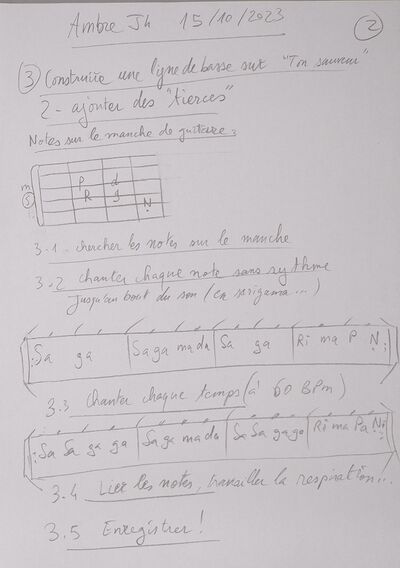 Ambre Jh 15/10/2023
2
3 Construire une ligne de basse sur "Ton sauveur"
2 - ajouter des "tierces"
Notes sur le manche de guitare :
P d
m R g
S N
3.1 - chercher les notes sur le manche
3.2 chanter chaque note sans rythme
jusqu'au bout du son (en sargama...)
Sa ga Sa ga ma da Sa ga Ri ma P N
3.3 chanter chaque temps (à 60 BPm)
Sa Sa ga ga Sa ga ma da Sa Sa ga ga Ri ma Pa Ni
3.4 Lier les notes, travailler la respiration...
3.5 Enregistrer !